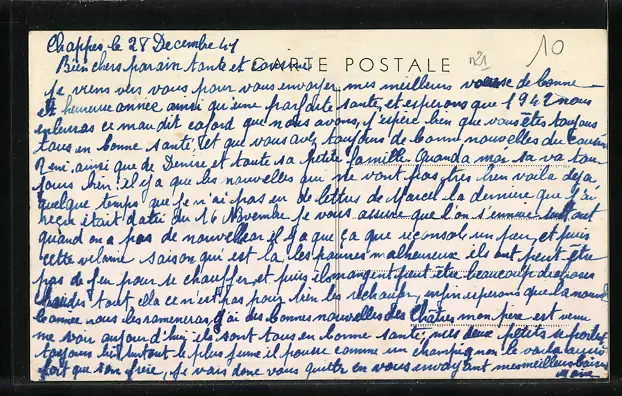 Chappes le 28 Decembre 41
10
Bien chers parain tante et cousine
CARTE POSTALE
Je viens vers vous pour vous envoyer mes meilleurs de bonne
et heureuse année ainsi qu'une parfaite santé, et esperons que 1942 nous
enleveras ce maudit cafard que nous avons, j'espère bien que vous êtes toujours
tous en bonne santé, et que vous avez toujours de bonne nouvelles du cousin
René ainsi que de Denise et toute sa petite famille. Quand a moi sa va tou
jours bien il y a que les nouvelles qui ne vont pas très bien voila déjà
quelque temps que je n'ai pas eu de lettres de Marcel la derniere que j'ai
reçue était daté du 16 Novembre je vous assure que l'on s'ennuie surtout
quand on a pas de nouvelles il y a que ça que reconsole un peu, et puis
cette vilaine saison qui est la, les pauvres malheureux ils ont peut être
pas de feu pour se chauffer, et puis ils mangent peut être beaucoup de choses
chaudes tout ella ce n'est pas pour bien les rechaufer, enfin esperons que la nouvel
le année nous les rameneras, j'ai des bonnes nouvelles des Châtres mon père est venu
me voir aujourd'hui ils sont tous en bonne santé, mes deux petits se portent
toujours bien surtout le plus jeune il pousse comme un champignon le voila aussi
fort que son frère, je vais donc vous quitter en vous envoyant mes meilleurs baisers